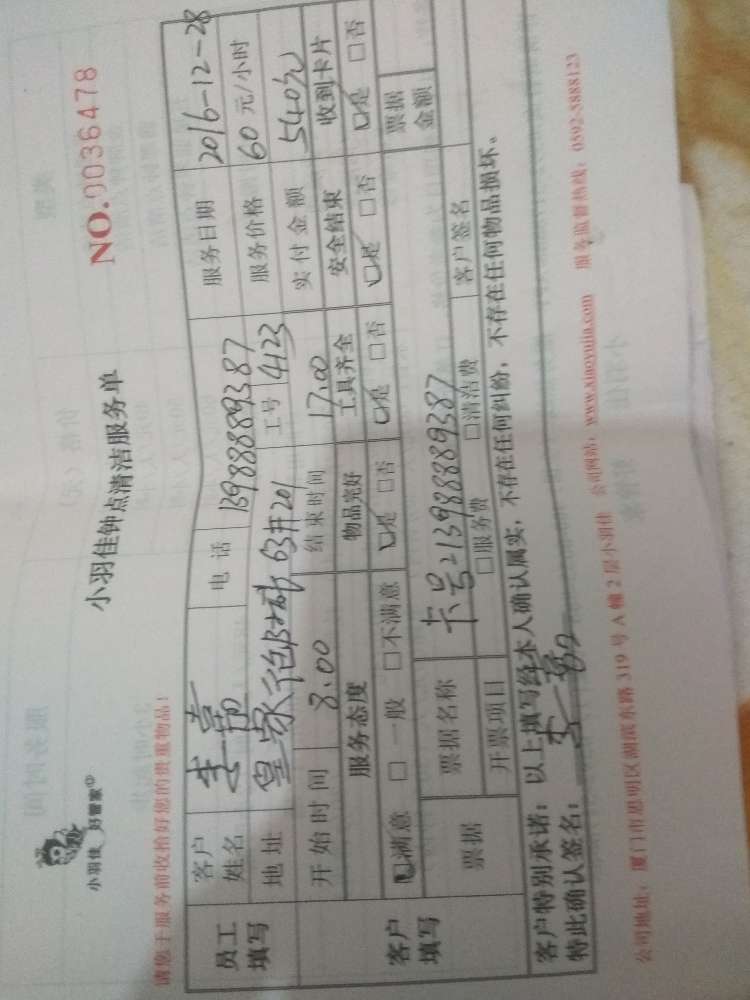 小羽佳 好管家
NO.0036478
小羽佳钟点清洁服务单
请您于服务前收拾好您的贵重物品！
员工填写
客户姓名 李 电话 13988889387 服务日期 2016-12-28
地址 皇家 63#201 工号 4123 服务价格 60 元/小时
开始时间 8:00 结束时间 17:00 实付金额 540元
客户填写
服务态度 物品完好 工具齐全 安全结束 收到卡片
☑满意 □一般 □不满意 ☑是 □否 ☑是 □否 ☑是 □否 ☑是 □否
票据 票据名称 卡号:13988889387 客户签名 票据金额
开票项目 □服务费 □清洁费
客户特别承诺：以上填写经本人确认属实，不存在任何纠纷，不存在任何物品损坏。
特此确认签名： 李
公司地址：厦门市思明区湖滨东路 319 号 A 幢 2 层小羽佳 公司网站：www.xiaoyujia.com 服务监督热线：0592-5888123